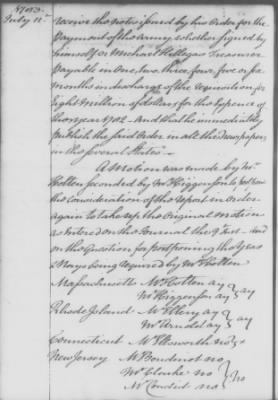 1783
July 11th
receive the notes issued by his Order for the
payment of the army, whether signed by
himself or Michael Hillegas Treasurer
payable in One, two, three, four, five or six
months in discharge of the requisition for
Eight Million of dollars for the Expence of
the year 1782 - And that he immediately
publish the said Order in all the Newspapers
in the several States -
A Motion was made by Mr
Holten seconded by Mr Higginson to postpone
the Consideration of the report in order
again to take up the Original Motion
as entered on the Journal the 9 Inst - And
on the Question for postponing the Yeas
& Nays being required by Mr Holten
Massachusetts Mr Holten ay
Mr Higginson ay } ay
Rhode Island Mr Ellery ay
Mr Arnold ay } ay
Connecticut Mr Elsworth no } x
New Jersey Mr Boudinot no
Mr Clarke no } no
Mr Condict no